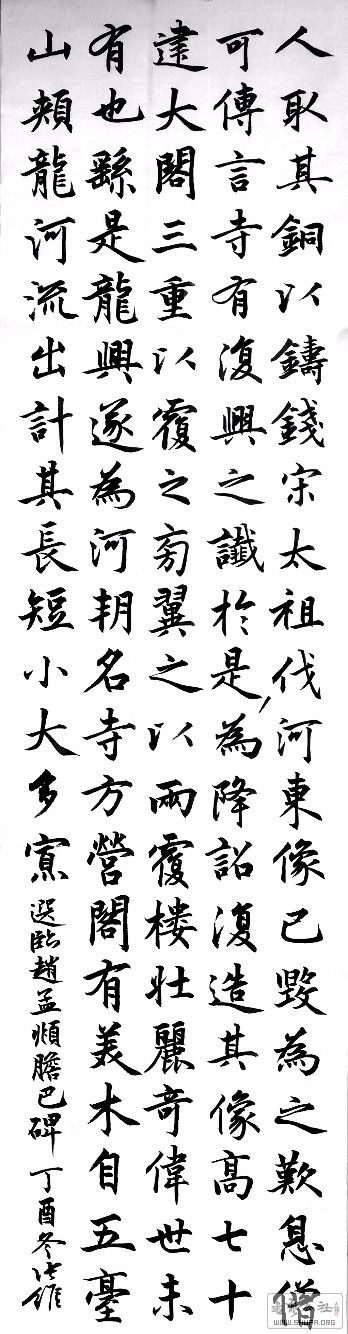 人取其銅以鑄錢宋太祖伐河東像已毀為之歎息僧
可傳言寺有復興之讖於是為降詔復造其像高七十
建大閣三重以覆之旁翼之以兩覆楼壯麗奇偉世未
有也繇是龍興遂為河朔名寺方營閣有美木自五臺
山頰龍河流出計其長短小大多寡 選臨趙孟頫膽巴碑 丁酉冬